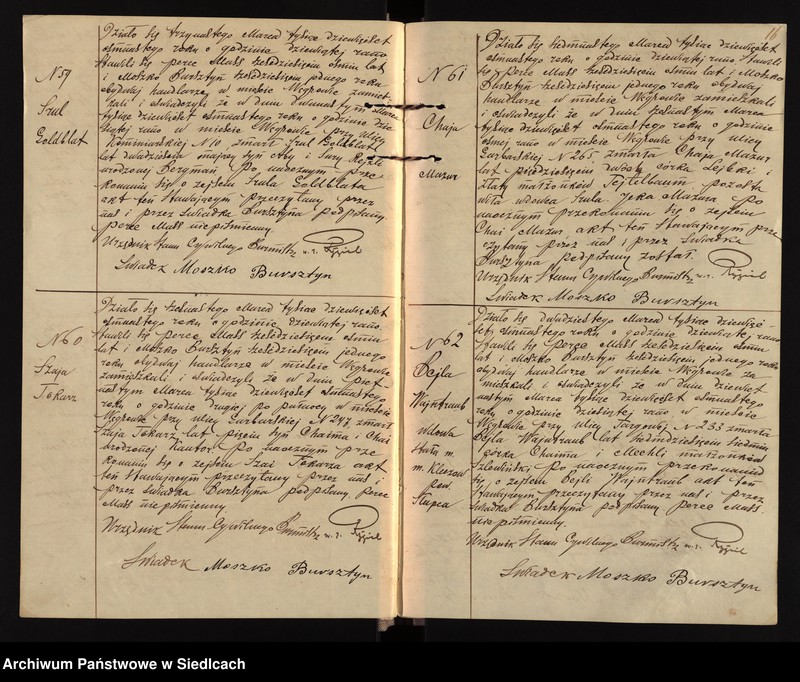 N 59
Szul
Goldblat
Działo się trzynastego Marca tysiąc dziewięćset
ósmnastego roku o godzinie dziewiątej rano
Stawili się Perec Mall sześćdziesięciu ośmiu lat
i Moszko Bursztyn sześćdziesięciu jednego roku
obydwaj handlarze w mieście Węgrowie zamiesz
kali i oświadczyli że w dniu dwunastym Marca
tysiąc dziewięćset ósmnastego roku o godzinie
rano w mieście Węgrowie przy ulicy
Kominiarskiej N 10, zmarł Szul Goldblat
lat dwadzieścia mający syn Aby i Sury Rojzli
urodzonej Bergman Po naocznym prze
konaniu się o zejściu Szula Goldblata
akt ten stawającym przeczytany przez
nas i przez Świadka Bursztyna podpisany
Perec Mall niepiśmienny.
Urzędnik Stanu Cywilnego Burmistrz
Świadek Moszko Bursztyn
N 60
Szaja
Tokarz
Działo się szesnastego Marca tysiąc dziewięćset
ósmnastego roku o godzinie dziewiątej rano.
Stawili się Perec Mall sześćdziesięciu ośmiu
lat i Moszko Bursztyn sześćdziesięciu jednego
roku obydwaj handlarze w mieście Węgrowie
zamieszkali i oświadczyli że w dniu pięt
nastym Marca tysiąc dziewięćset ósmnastego
roku o godzinie drugiej po północy w mieście
Węgrowie przy ulicy Garbarskiej N 247 zmarł
Szaja Tokarz lat pięciu syn Chaima i Chai
urodzonej Kantor. Po naocznym prze
konaniu się o zejściu Szai Tokarza akt
ten stawającym przeczytany przez nas i
przez Świadka Bursztyna podpisany Perec
Mall niepiśmienny
Urzędnik Stanu Cywilnego Burmistrz
Świadek Moszko Bursztyn
16
N 61
Chaja
Mazur
Działo się siedmnastego Marca tysiąc dziewięćset
ósmnastego roku o godzinie dziewiątej rano. Stawili
się Perec Mall sześćdziesięciu ośmiu lat i Moszko
Bursztyn sześćdziesięciu jednego roku obydwaj
handlarze w mieście Węgrowie zamieszkali
i oświadczyli że w dniu szesnastym Marca
tysiąc dziewięćset ósmnastego roku o godzinie
ósmej rano w mieście Węgrowie przy ulicy
Garbarskiej N 265, zmarła Chaja Mazur
lat pięćdziesięciu wdowa córka Lejbki i
Złaty małżonków Tejtelbaum. pozosta
wiła wdowca Szula. Icka Mazura. Po
naocznym przekonaniu się o zejściu
Chai Mazur, akt ten stawającym prze
czytany przez nas i przez Świadka
Bursztyna podpisany został.
Urzędnik Stanu Cywilnego Burmistrz
Świadek Moszko Bursztyn
N 62
Bejla
Wajntraub
wdowa
m. Kleczew
pow.
Słupca
Działo się dwudziestego Marca tysiąc dziewięć
set ósmnastego roku o godzinie dziewiątej rano
Stawili się Perec Mall sześćdziesięciu ośmiu
lat i Moszko Bursztyn sześćdziesięciu jednego roku
obydwaj handlarze w mieście Węgrowie za
mieszkali i oświadczyli że w dniu dziewięt
nastym Marca tysiąc dziewięćset ósmnastego
roku o godzinie dziesiątej rano w mieście
Węgrowie przy ulicy Targowej N 233 zmarła
Bejla Wajntraub lat siedmdziesięciu siedmiu
córka Chaima i Mechli małżonków
Po naocznym przekonaniu
się o zejściu Bejli Wajntraub akt ten
stawającym przeczytany przez nas i przez
Świadka Bursztyna podpisany Perec Mall
niepiśmienny.
Urzędnik Stanu Cywilnego Burmistrz
Świadek Moszko Bursztyn
Archiwum Państwowe w Siedlcach